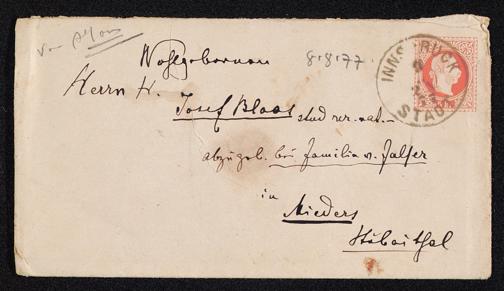 Von
8.8.77.
Wohlgeboren
Herrn H.
Josef Blaas stud rer. nat.
abzugeb. bei Familie v.
in
Mieders
Stubaithal
INNSBRUCK
STADT